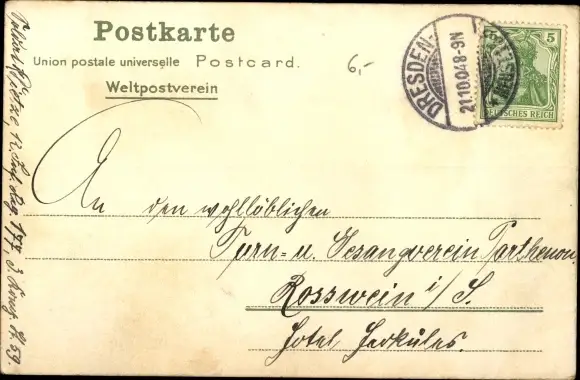 Postkarte
Union postale universelle Postcard.
Weltpostverein
6,-
DRESDEN-
21.10.04 8-9N
5
DEUTSCHES REICH
An den wohllöblichen
Turn- u. Gesangverein Parthenon
Rosswein i/S.
Hotel Herkules.
12. Inf. Reg. 177